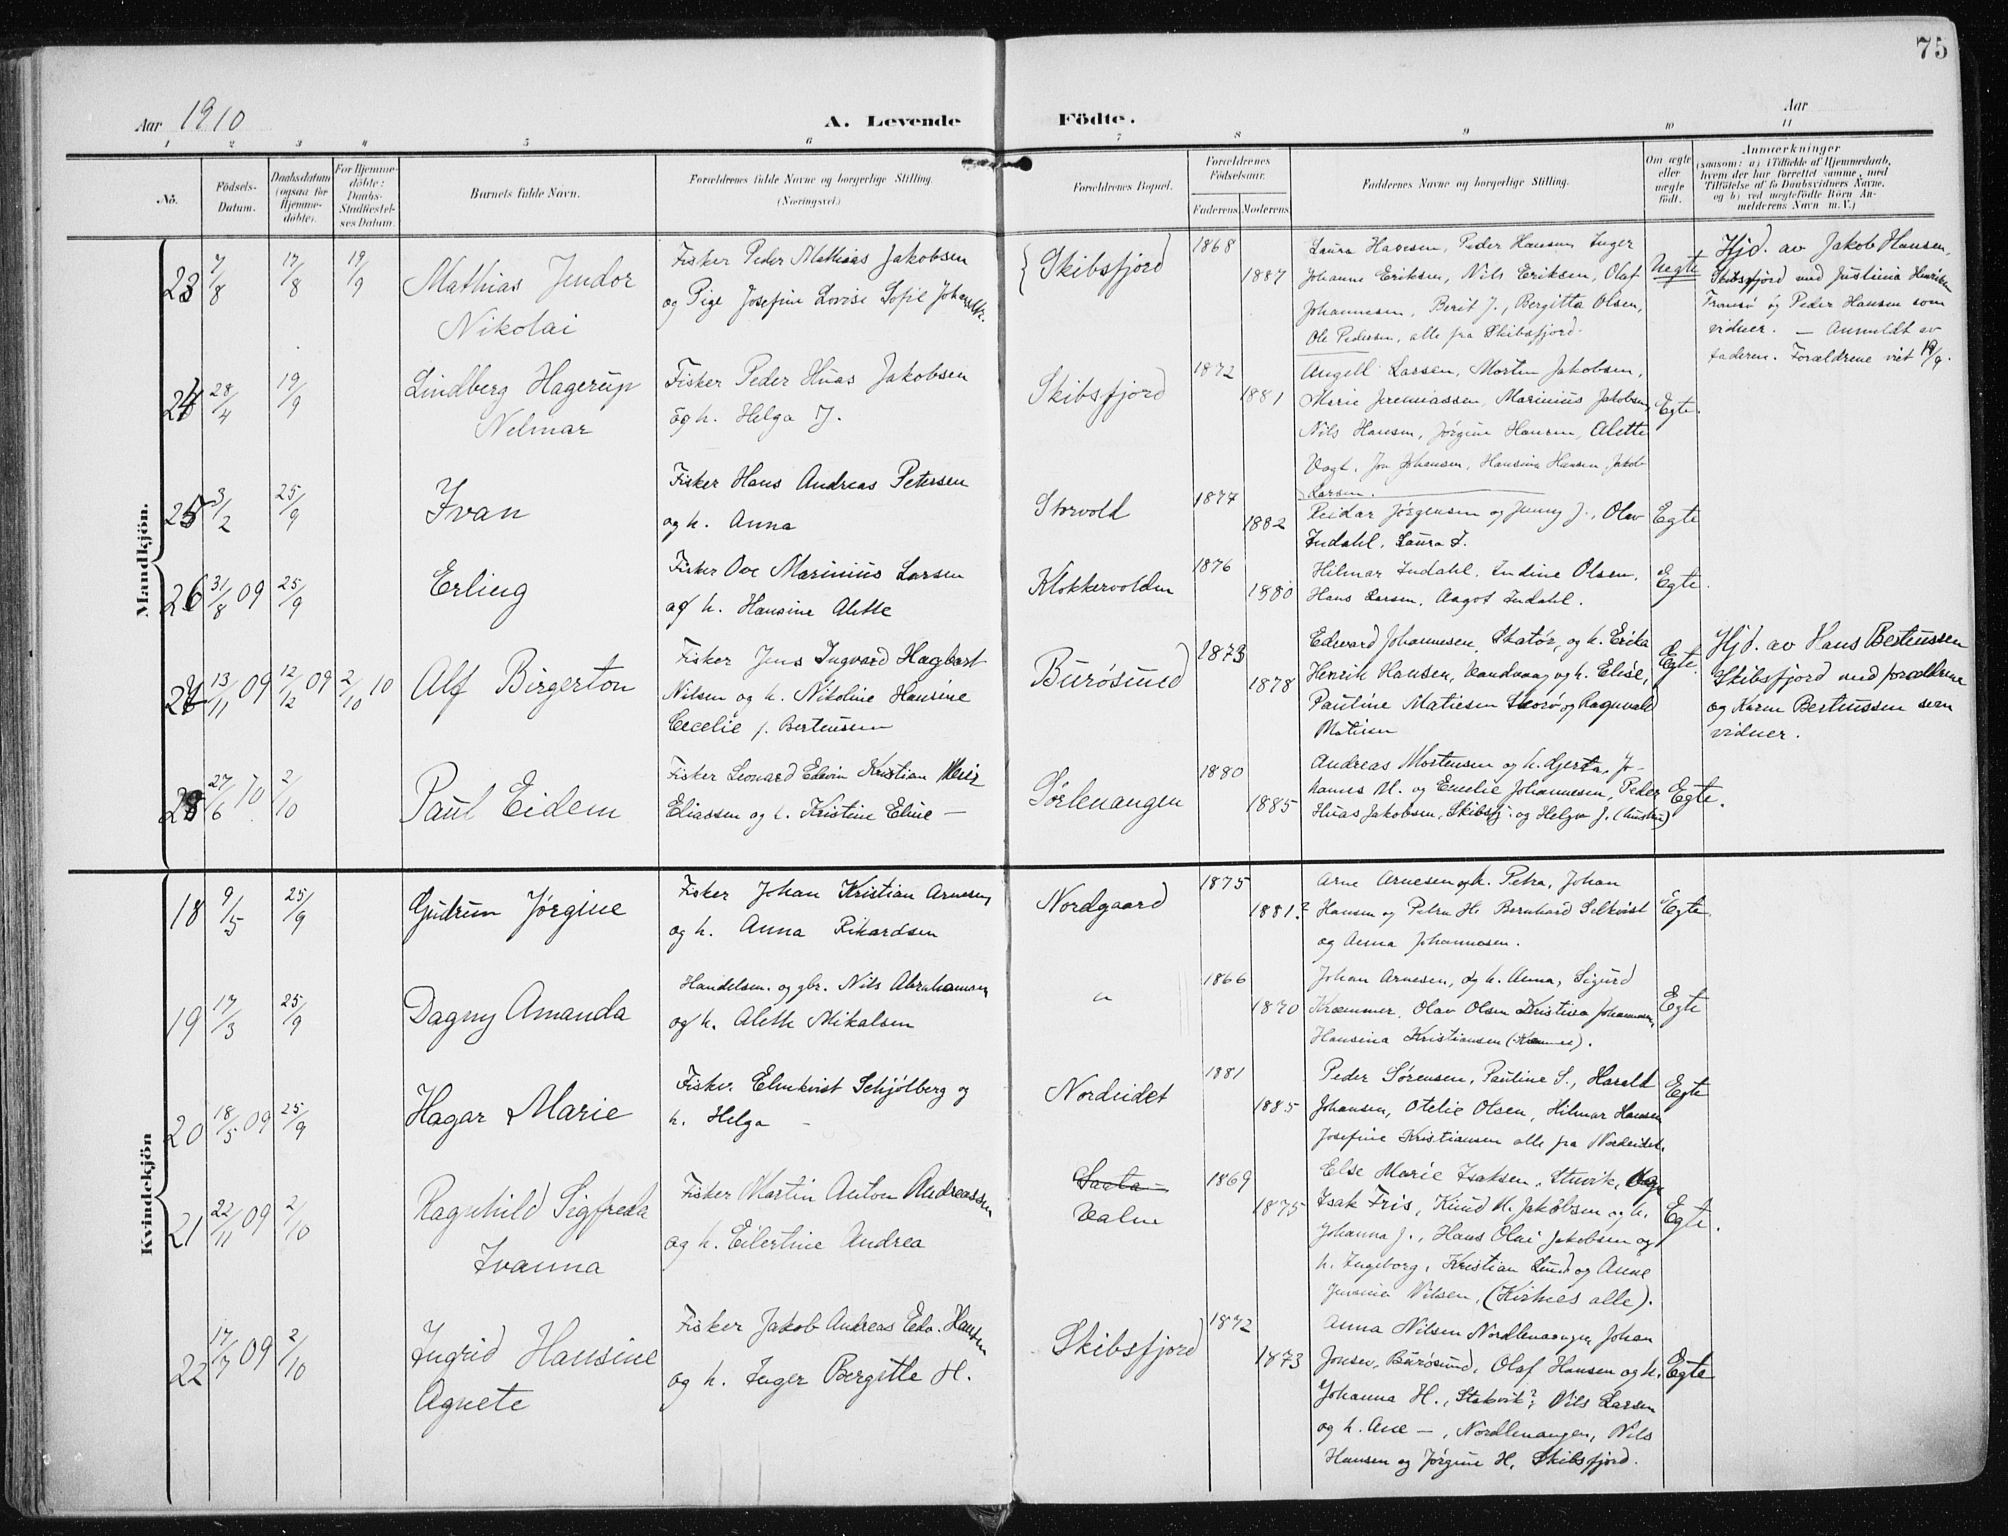 75
Aar 1910
A. Levende
Födte.
Aar
1 2 3 4 5 6 7 8 9 10 11
No.
Födsels-
Datum.
Daabsdatum
(ogsaa for
Hjemme-
döbte).
For Hjemme-
döbte:
Daabs-
Stadfæstel-
ses Datum.
Barnets fulde Navn.
Forældrenes fulde Navne og borgerlige Stilling.
(Næringsvei)
Forældrenes Bopæl.
Forældrenes
Födselsaar.
Faderens. Moderens.
Faddernes Navne og borgerlige Stilling.
Om ægte
eller
uægte
födt.
Anmærkninger
(saasom: a) i Tilfælde af Hjemmedaab,
hvem der har forrettet samme, med
Tilföielse af to Daabsvidners Navne,
og b) ved uægtefödte Börn An-
melderens Navn m. V.)
Mandkjön.
23 7/8 17/8 19/9 Mathias Jendor
Nikolai
Fisker Peder Mathias Jakobsen
og Pige Josefine Lovise Sofie
Skibsfjord
1868
1887
Laura Hansen, Peder Hansen, Inger
Johanne Eriksen, Nils Eriksen, Olaf
Johannesen, Berit J., Bergitta Olsen,
Ole Pedersen, alle fra Skibsfjord.
Uegte
Hjd. av Jakob Hansen,
Skibsfjord med Justina Henriksen
Tromsø og Peder Hansen som
vidner. — Anmeldt av
faderen. Forældrene viet 19/9.
24 28/4 19/9 Lindberg Hagerup
Nelmar
Fisker Peder Huas Jakobsen
og h. Helga J.
Skibsfjord
1872
1881
Angell Larsen, Morten Jakobsen,
Marie Jeremiassen, Marinius Jakobsen,
Nils Hansen, Jørgine Hansen, Alette
Vogt, Jon Johansen, Hansina Hansen, Jakob
Larsen.
Egte.
25 3/2 25/9 Ivan
Fisker Hans Andreas Petersen
og h. Anna
Storvold
1877
1882
Reidar Jørgensen og Jenny J., Olav
Indahl, Laura I.
Egte
26 31/8 09 25/9 Erling
Fisker Ove Marinius Larsen
og h. Hansine Alette
Klokkervolden
1876
1880
Hilmar Indahl, Indine Olsen,
Hans Larsen, Aagot Indahl.
Egte.
27 13/11 09 12/12 09 2/10 10 Alf Birgerton
Fisker Jens Ingvard Hagbart
Nilsen og h. Nikoline Hansine
Cecelie f. Berteussen
Burøsund
1873
1878
Edvard Johannesen, Skatør, og h. Erika
Henrik Hansen, Vandvaag og h. Elise,
Pauline Matiesen Skorø og Ragnvald
Matisen
Egte.
Hjd. av Hans Berteussen
Skibsfjord med forældrene
og Karen Berteussen som
vidner.
28 27/6 10 2/10 Paul Eidem
Fisker Leonard Edvin Kristian Meiz
Eliassen og h. Kristine Eline —
Sørlenangen
1880
1885
Andreas Mortensen og h. Gjerta, Jo-
hannes M. og Emelie Johannesen, Peder
Huas Jakobsen, Skibsfj. og Helga J. (hustru)
Egte.
Kvindekjön
18 9/5 25/9 Gudrun Jørgine
Fisker Johan Kristian Arnesen,
og h. Anna Rikardsen
Nordgaard
1875
1881?
Arne Arnesen og h. Petra, Johan
Hansen og Petra H. Bernhard Selkvist
og Anna Johannesen.
Egte.
19 17/3 25/9 Dagny Amanda
Handelsm. og gbr. Nils Abrahamsen
og h. Aleth Mikalsen
"
1866
1870
Johan Arnesen, og h. Anna, Sigurd
Kræmmer, Olav Olsen Kristina Johannesen,
Hansina Kristiansen
Egte
20 18/5 09 25/9 Hagar Marie
Fisker Elmkvist Schjølberg og
h. Helga —
Nordeidet
1881
1885
Peder Sørensen, Pauline S., Harald
Johansen, Otelie Olsen, Hilmar Hansen
Josefine Kristiansen alle fra Nordeidet.
Egte
21 22/11 09 2/10 Ragnhild Sigfreda
Ivanna
Fisker Martin Anton Andreassen
og h. Eilertine Andrea
Valne
1869
1875
Else Marie Isaksen, Stuvik,
Isak Friis, Knud M. Jakobsen og h.
Johanna J., Hans Olai Jakobsen og
h. Ingeborg, Kristian Lund og Anne
Nilsen, (Kirknes alle).
Egte.
22 17/7 09 2/10 Ingrid Hansine
Agnete
Fisker Jakob Andreas Edv. Hansen
og h. Inger Bergitte H.
Skibsfjord
1872
1873
Anna Nilsen Nordlenangen, Johan
Jonsen, Burøsund, Olaf Hansen og h.
Johanna H., Stakvik? Nils Larsen
og h. Ane —, Nordlenangen, Nils
Hansen og Jørgine H, Skibsfjord.
Egte